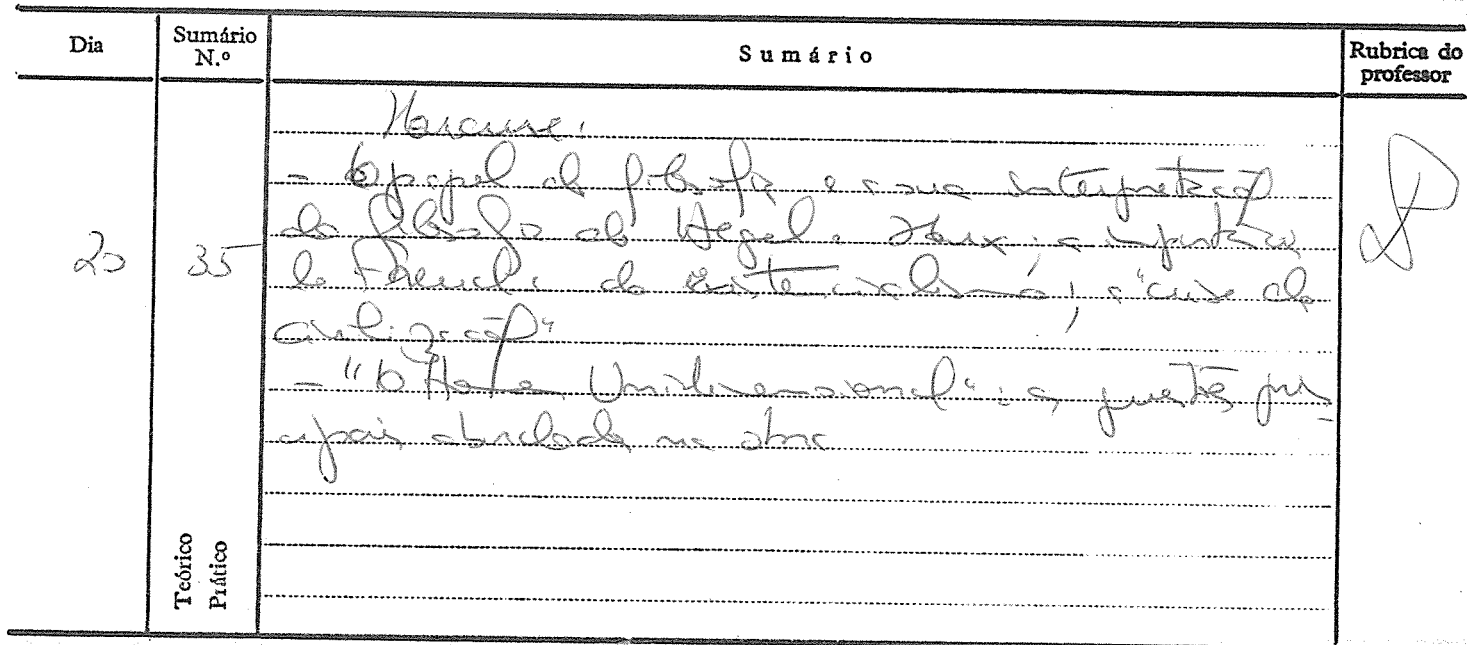 Dia
Sumário N.º
Sumário
Rubrica do professor
20
35
Marcuse:
- O papel da filosofia e a sua interpretação
da filosofia de Hegel. Marx: a importância
de Freud e do existencialismo; a "crise da
civilização"
- "O Homem Unidimensional": as questões prin-
cipais abordadas na obra
Teórico
Prático